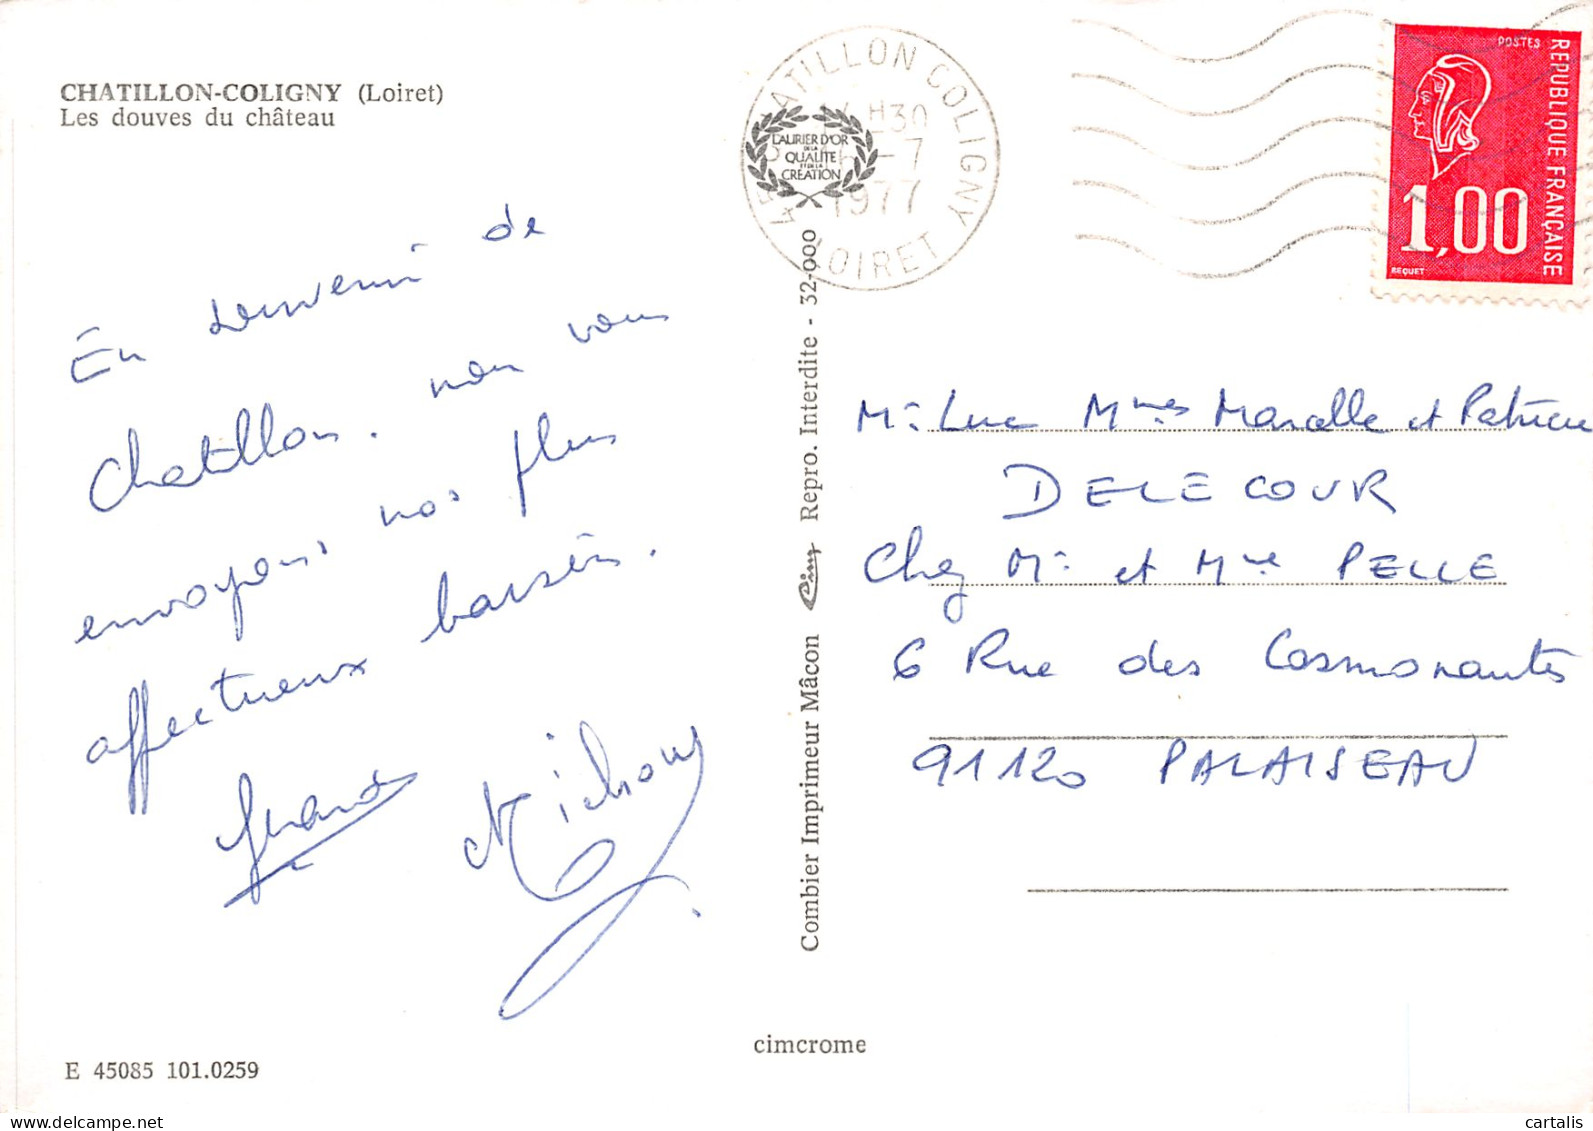 CHATILLON-COLIGNY (Loiret)
Les douves du château
En souvenir de
Chatillon. nous vous
envoyons nos plus
affectueux baisers.
E 45085 101.0259
cimcrome
Combier Imprimeur Mâcon Cim Repro. Interdite - 32-000
LAURIER D'OR
DE LA
QUALITE
ET DE LA
CREATION
CHATILLON COLIGNY
LOIRET
H30
-7
1977
POSTES
REPUBLIQUE FRANÇAISE
1,00
BEQUET
Mr Luc Mmes Marcelle et Patricia
DELECOUR
Chez Mr et Mme PELLE
6 Rue des Cosmonautes
91120 PALAISEAU
cartalis